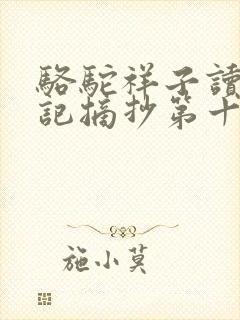 駱駝祥子讀
記摘抄第十
施小莫